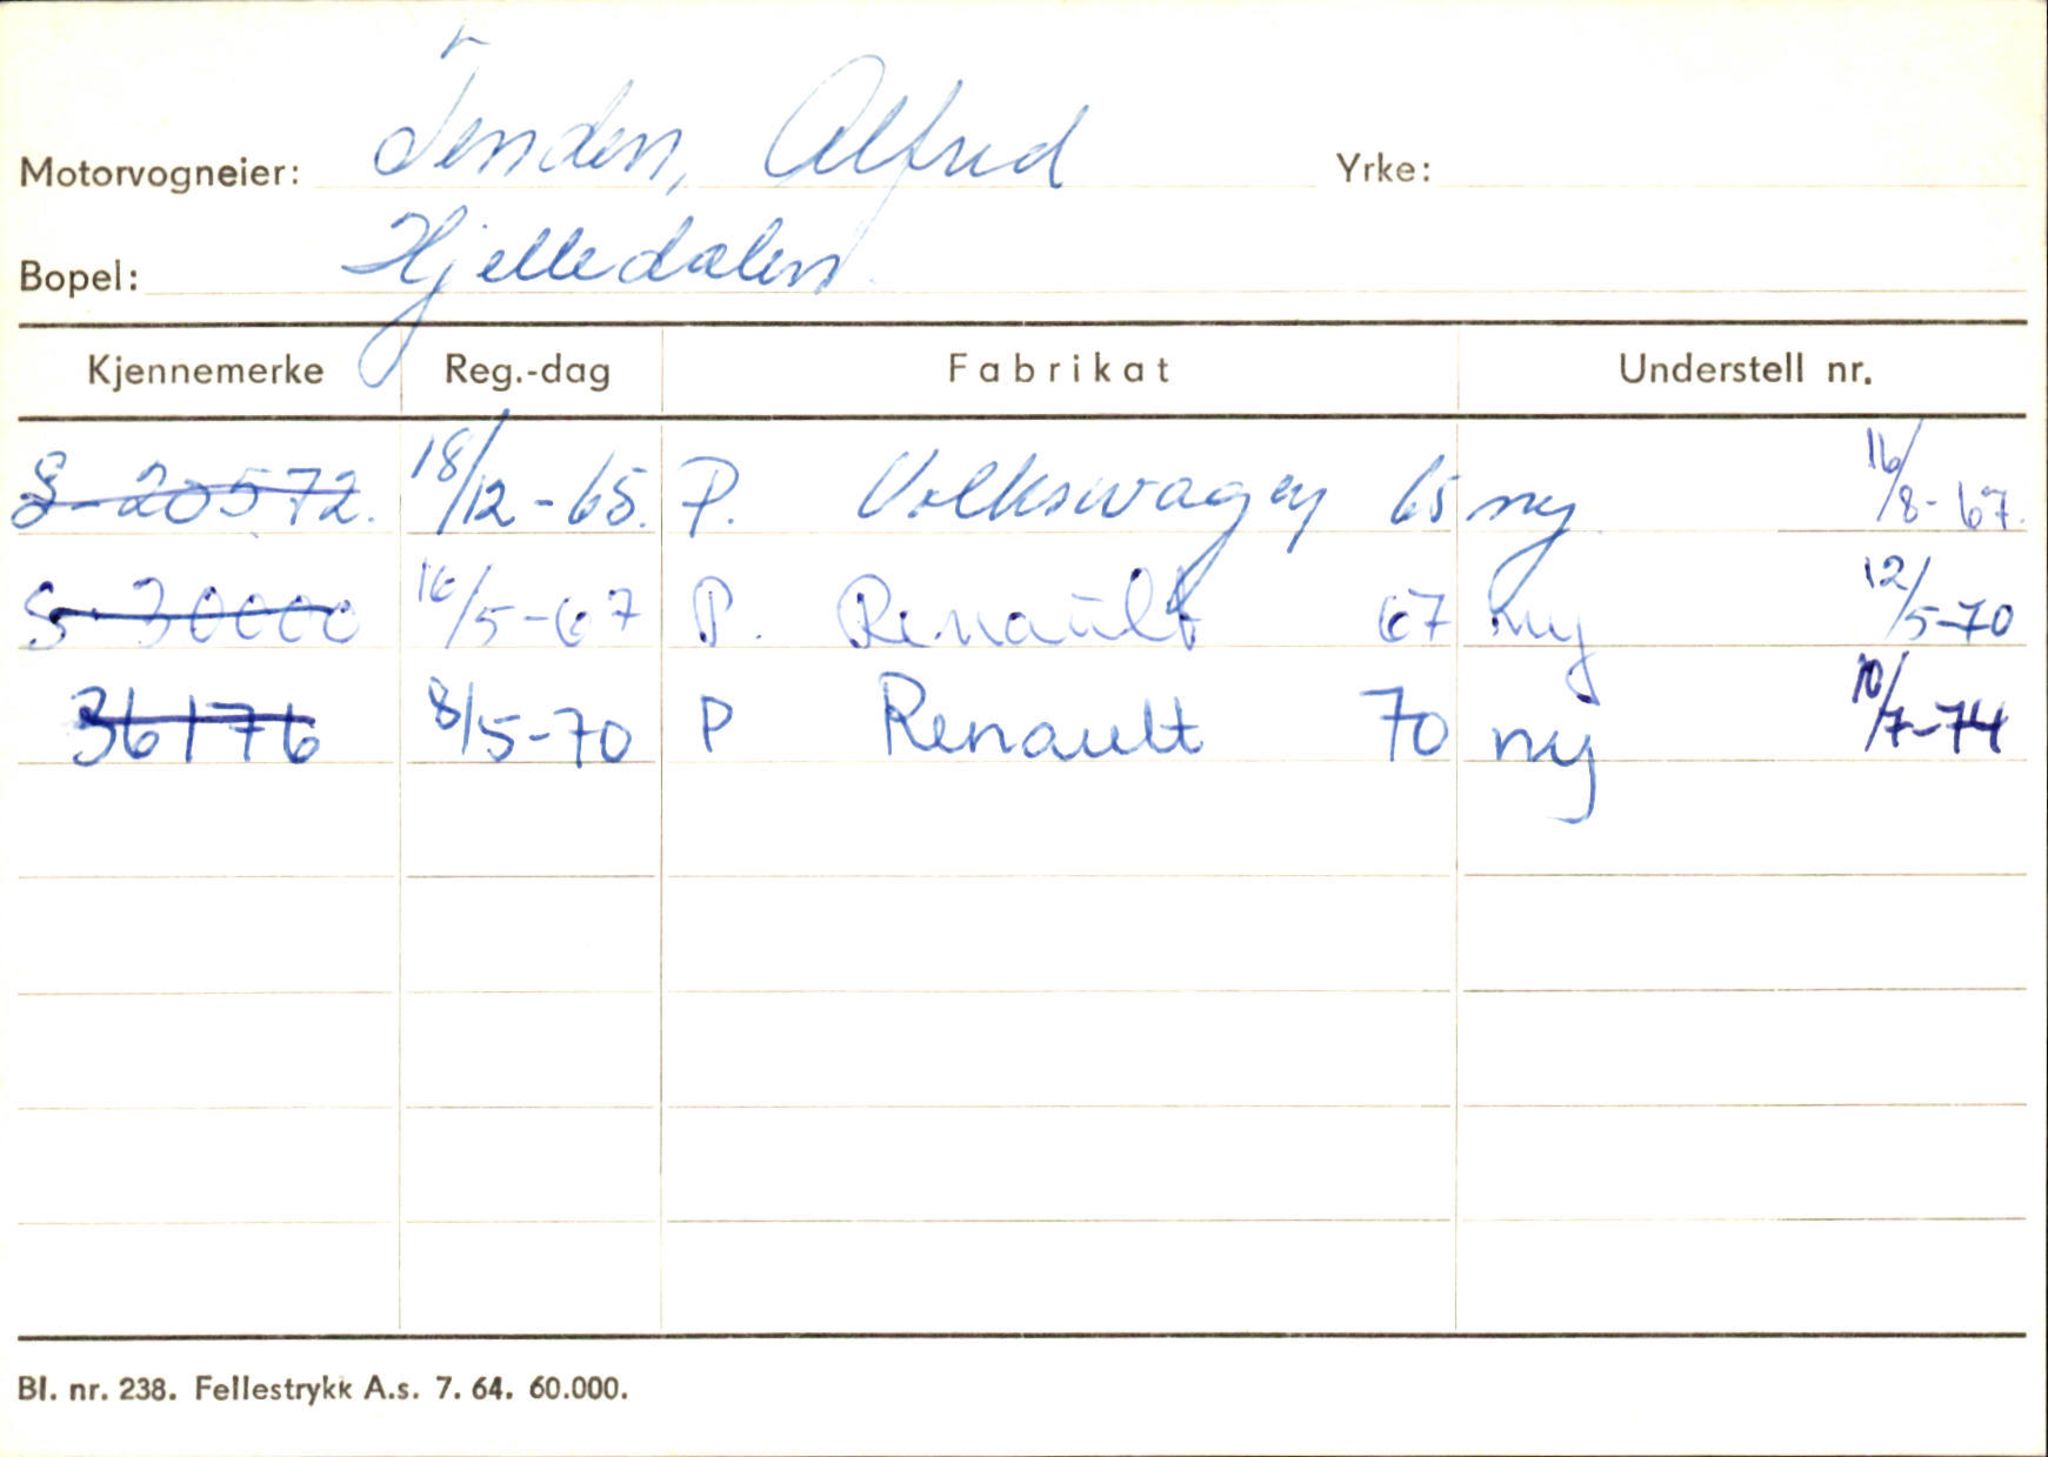 Motorvogneier: Tenden, Alfred Yrke:
Bopel: Hjelledalen
Kjennemerke Reg.-dag Fabrikat Understell nr.
S-20572. 18/12-65. P. Volkswagen 65 ny 16/8-67.
S-30000 16/5-67 P. Renault 67 ny 12/5-70
36176 8/5-70 P Renault 70 ny 10/7-74
Bl. nr. 238. Fellestrykk A.s. 7. 64. 60.000.